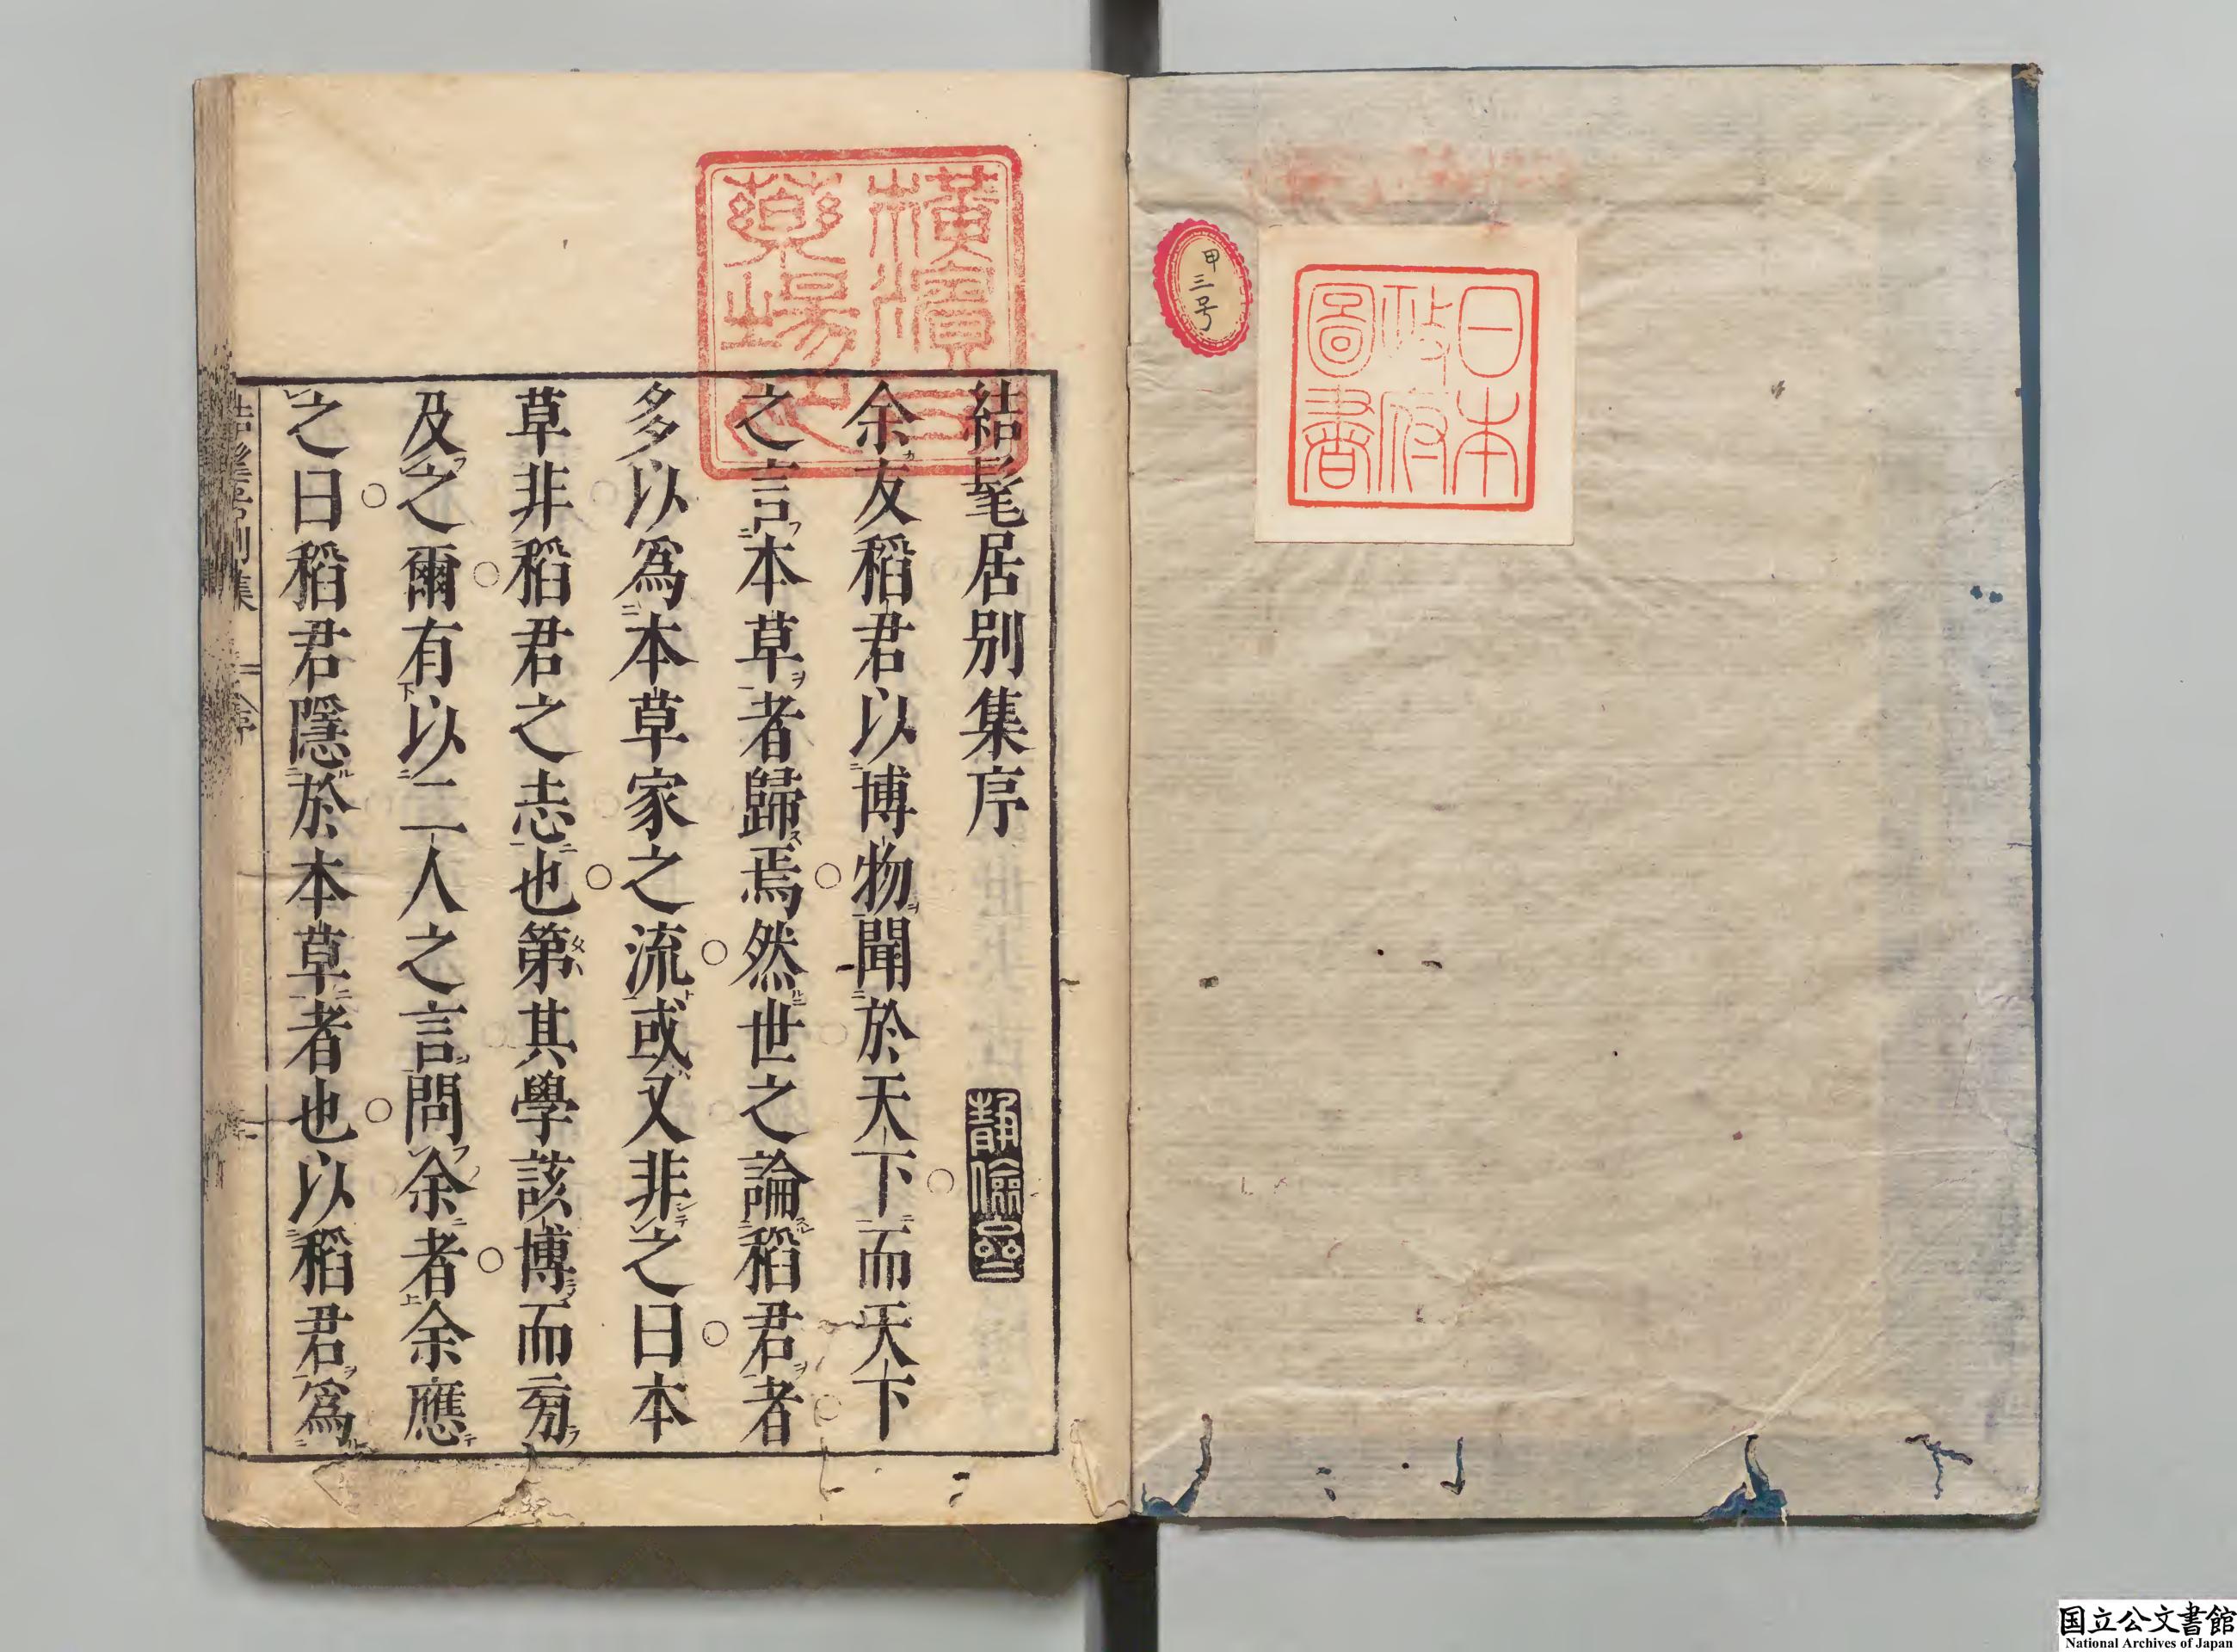 日本
政府
圖書
甲
三号
橫濱司
藥場印
結髦居別集序
余友稻君以博物聞於天下而天下
之言本草者歸焉然世之論稻君者
多以爲本草家之流或又非之曰本
草非稻君之志也第其學該博而旁
及之爾有以二人之言問余者余應
之曰稻君隱於本草者也以稻君爲
国立公文書館
National Archives of Japan